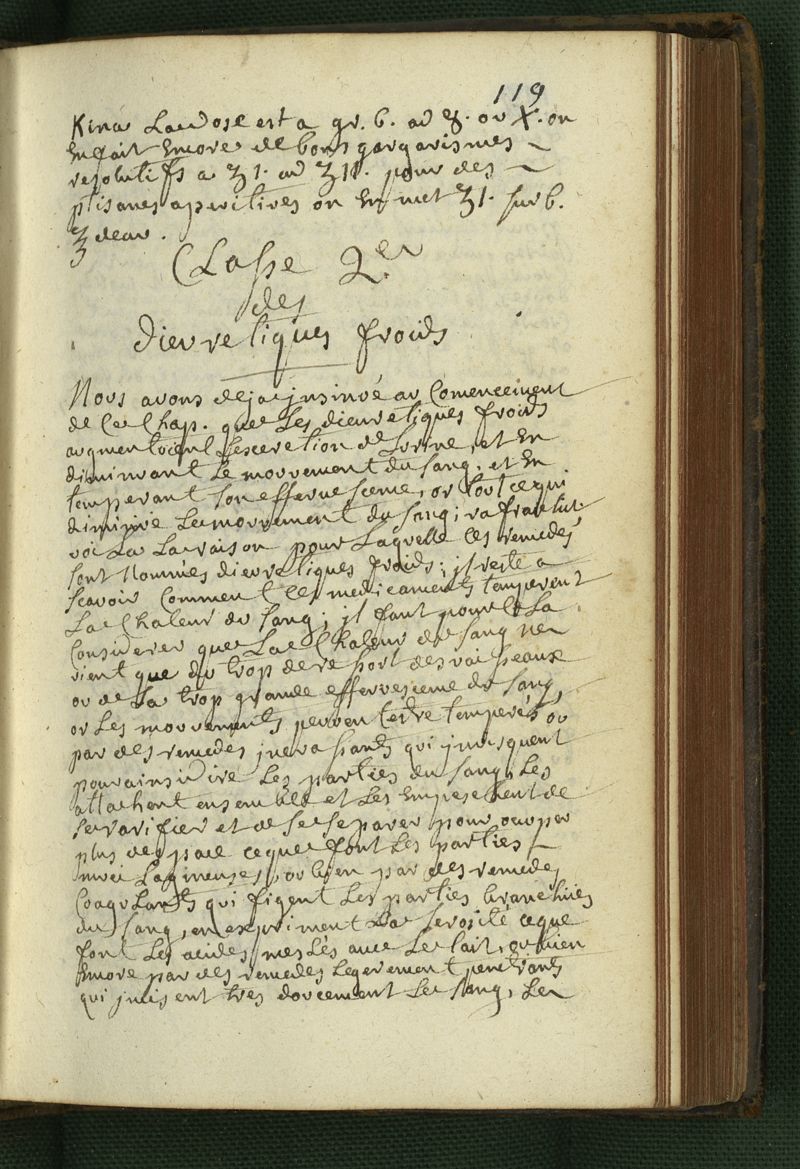 119
Kina La dose est a gr. 6. ad 8. ou X. on
En fait Encore de bons gargarismes
resolutifs a ʒ 1. ad ʒ 11. pour des
ptisanes aperitives on En met ʒ 1. sur 6.
℥ deau.
Classe 2er
des
dieuretiques froids
Nous avons deja insinué au Comencement
de Ce Chap. que Les dieuretiques froids
augmentoient Lescretion de Lurine, et En
diminuant Le mouvement du sang, et En
temperant son effervescence, or tout ce qui
diminüe Le mouvement du sang; rafraichit
voi La La raison pour Laquelle Ces remedes
sont Nommés dieuretiques froids; il reste a
scavoir Comment Ces medicaments temperent
La Chaleur du sang; il faut pour Cela
Considerer que La Chaleur du sang ne
vient que du trop de ressort des vaisseaux
ou de La trop grande effervescence du sang,
or Les mouvements peuvent estre temperés ou
par des remedes incrassants qui invisquent
pour ainsi dire Les parties du sang, Les
attachent ensemble et Les Empeschent de
se rarifier et de se separer pour occuper
plus despace ce que font Les parties
mucilagineuses, ou bien par des remedes
Coagulants qui figent Les parties branchües
du sang, en expriment La serosité ce que
font Les acides meslés avec Le lait, ou bien
Encore par des remedes Legerement penetrants
qui incisent tres doucement Le sang, Le